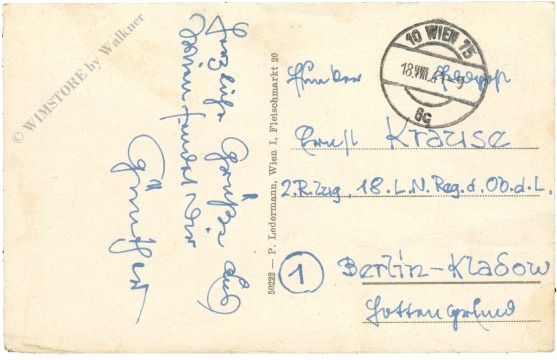 © WIMSTORE by Walkner
Herzliche Grüße aus
Wien sendet Dir
Günther
50222 — P. Ledermann, Wien I, Fleischmarkt 20
10 WIEN 75
18.VIII.41
6c
Funker Feldpost
Ernst Krause
2.R.Zug, 18.L.N.Reg.d.Ob.d.L.
1
Berlin-Kladow
Hottengrund